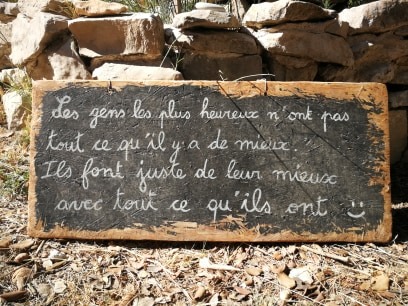 Les gens les plus heureux n'ont pas
tout ce qu'il y a de mieux.
Ils font juste de leur mieux
avec tout ce qu'ils ont :)